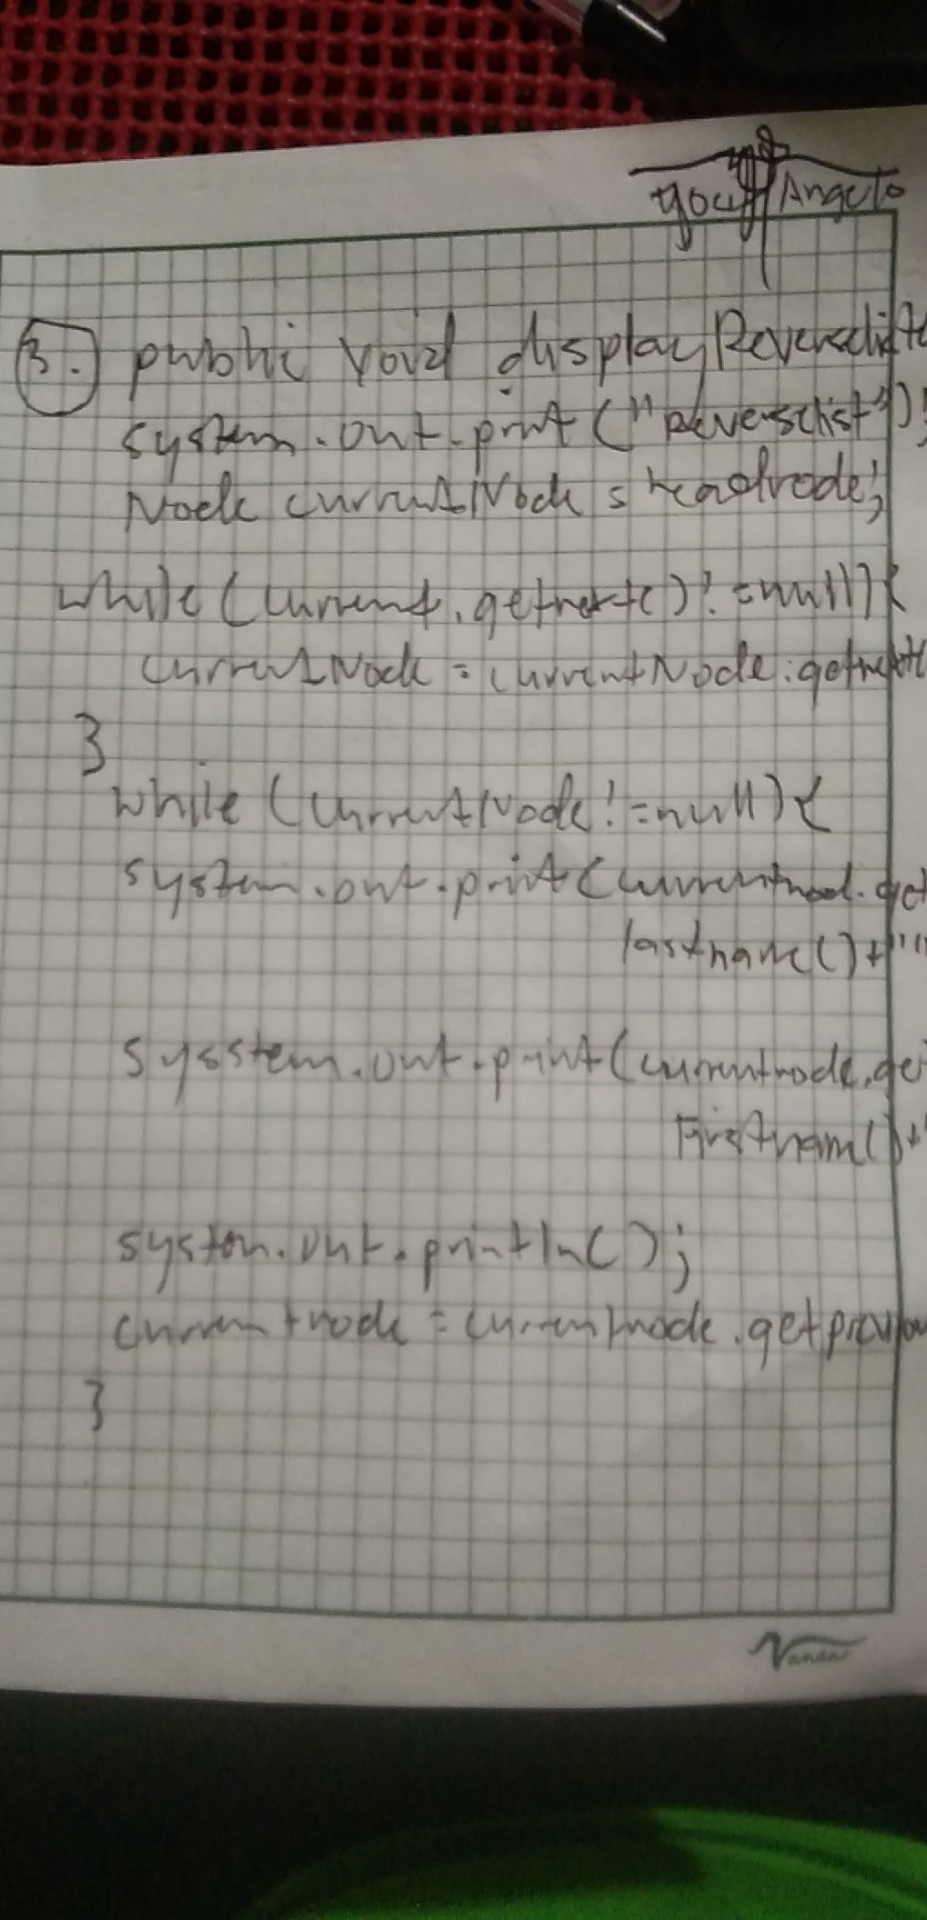 you Angelo
3. public void displayReverselist
system.out.print("Reverselist");
Node currentNode = headnode;
while(current.getnext()!=null){
currentNode = currentNode.getnext(
}
while (currentNode!=null){
system.out.print(currentnod.get
lastname()+""
sysstem.out.print(currentnode.get
Firstnam()+"
system.out.println();
currentnode = currentnode.getpreviou
}
Vanda